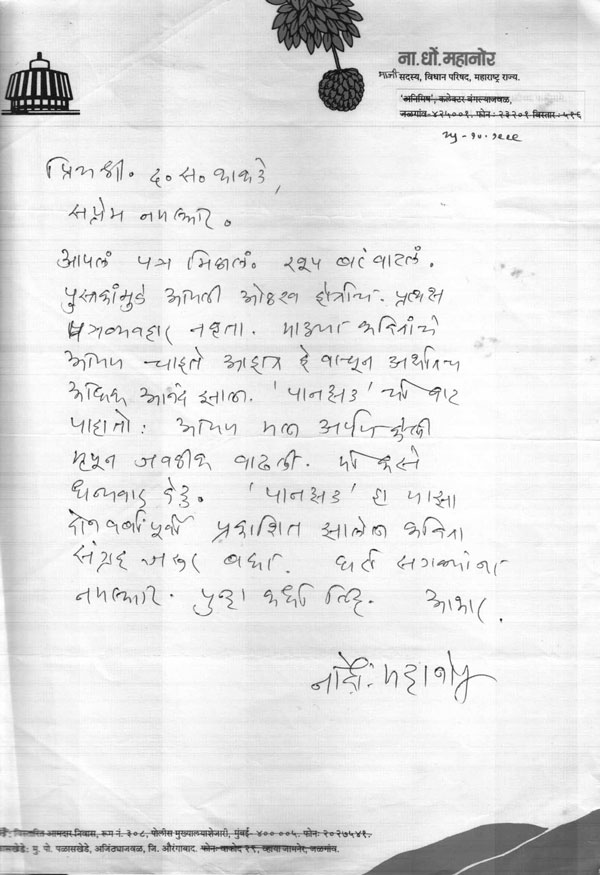 ना. धों. महानोर
माजी सदस्य, विधान परिषद, महाराष्ट्र राज्य.
'अनिमिष', कलेक्टर बंगल्याजवळ,
जळगांव-४२५००१. फोन : २३२०१ विस्तार : ५९६
२५-१०-१९९९
प्रिय श्री. द. स. काकडे,
सप्रेम नमस्कार.
आपलं पत्र मिळालं. खूप बरं वाटलं.
पुस्तकांमुळे आपली ओळख होतीच. प्रत्यक्ष
पत्रव्यवहार नव्हता. माझ्या कवितांचे
आपण चाहते आहात हे वाचून अर्थातच
अधिक आनंद झाला. 'पानझड' ची वाट
पाहातो. आपण मला अर्पण केली
म्हणून जवळीक वाढली. मी कसे
धन्यवाद देऊ. 'पानझड' हा माझा
दोन वर्षांपूर्वी प्रकाशित झालेला कविता
संग्रह जरूर बघा. घरी सगळ्यांना
नमस्कार. पुन्हा कधी लिहू. आभार.
ना. धों. महानोर
विस्तारित आमदार निवास, रूम नं. ३०८, पोलीस मुख्यालयाशेजारी, मुंबई- ४०० ००५. फोन: २०२७५४१.
मु. पो. पळासखेडे, अजिंठ्याजवळ, जि. औरंगाबाद. फोन: वाकोद २९, व्हाया जामनेर, जळगांव.